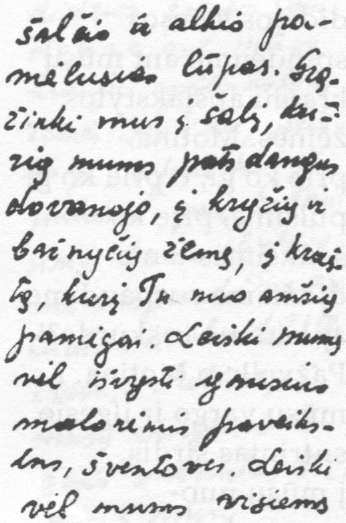 šalčio ir alkio pa-
mėlusias lūpas. Grą-
žinki mus į šalį, ku-
rią mums pats dangus
dovanojo, į kryžių ir
bažnyčių žemę, į kraš-
tą, kurį Tu nuo amžių
pamėgai. Leiski mums
vėl išvysti gausius
malonėmis paveiks-
lus, šventoves. Leiski
vėl mums visiems